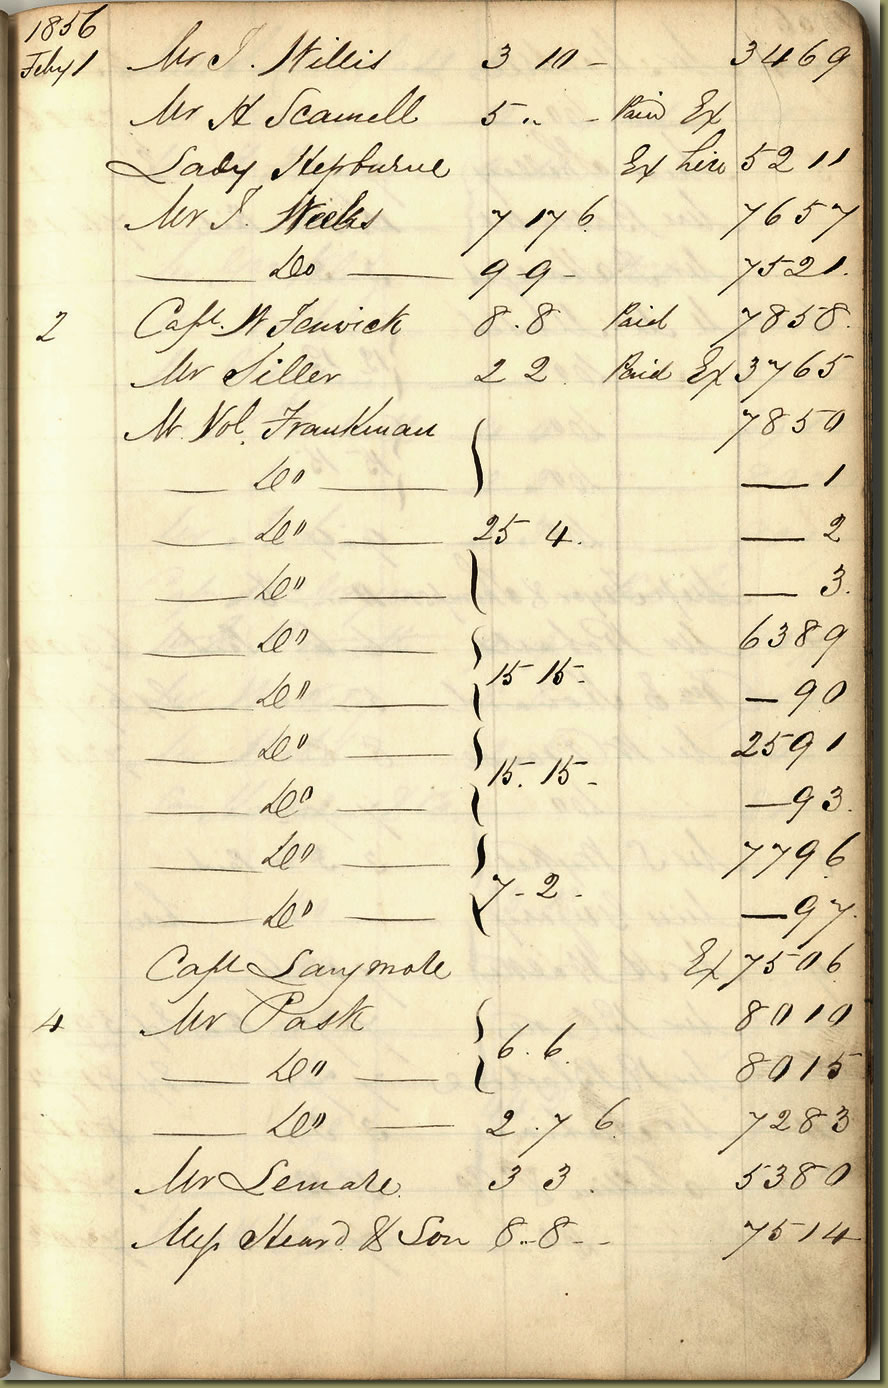 1856
Feby 1 Mr J. Willis 3 10 - 3469
Mr H Scamell 5 .. - Paid Ex
Lady Hepburne Ex hire 5211
Mr J. Weeks 7 17 6 7657
—— Do —— 9 9 - 7521.
2 Capt. W Fenwick 8.8 Paid 7858.
Mr Siller 2 2 Paid Ex 3765
M. Vol. Frankman 7850
— Do — — 1
— Do — 25 4. — 2
— Do — — 3.
— Do — 6389
15 15-
— Do — — 90
— Do — 2591
15. 15-
— Do — — 93.
— Do — 7796
7 - 2 -
— Do — — 97.
Capt Ex 7506
4 Mr Pask 8010
6. 6.
— Do — 8015
— Do — 2.7 6. 7283
Mr Lemare. 3 3. 5380
Mess Heard & Son 8..8 - - 7514